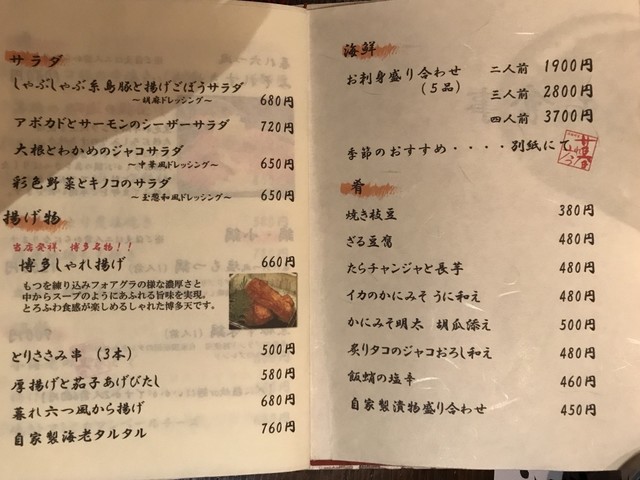 サラダ
しゃぶしゃぶ糸島豚と揚げごぼうサラダ
～胡麻ドレッシング～ 680円
アボカドとサーモンのシーザーサラダ 720円
大根とわかめのジャコサラダ
～中華風ドレッシング～ 650円
彩色野菜とキノコのサラダ
～玉葱和風ドレッシング～ 650円
揚げ物
当店発祥、博多名物！！
博多しゃれ揚げ 660円
もつを練り込みフォアグラの様な濃厚さと
中からスープのようにあふれる旨味を実現。
とろふわ食感が楽しめるしゃれた博多天です。
とりささみ串 (3本) 500円
厚揚げと茄子あげびたし 580円
暮れ六つ風から揚げ 680円
自家製海老タルタル 760円
海鮮
お刺身盛り合わせ 二人前 1900円
(5品) 三人前 2800円
四人前 3700円
季節のおすすめ・・・・別紙にて
肴
焼き枝豆 380円
ざる豆腐 480円
たらチャンジャと長芋 480円
イカのかにみそ うに和え 480円
かにみそ明太 胡瓜添え 500円
炙りタコのジャコおろし和え 480円
飯蛸の塩辛 460円
自家製漬物盛り合わせ 450円